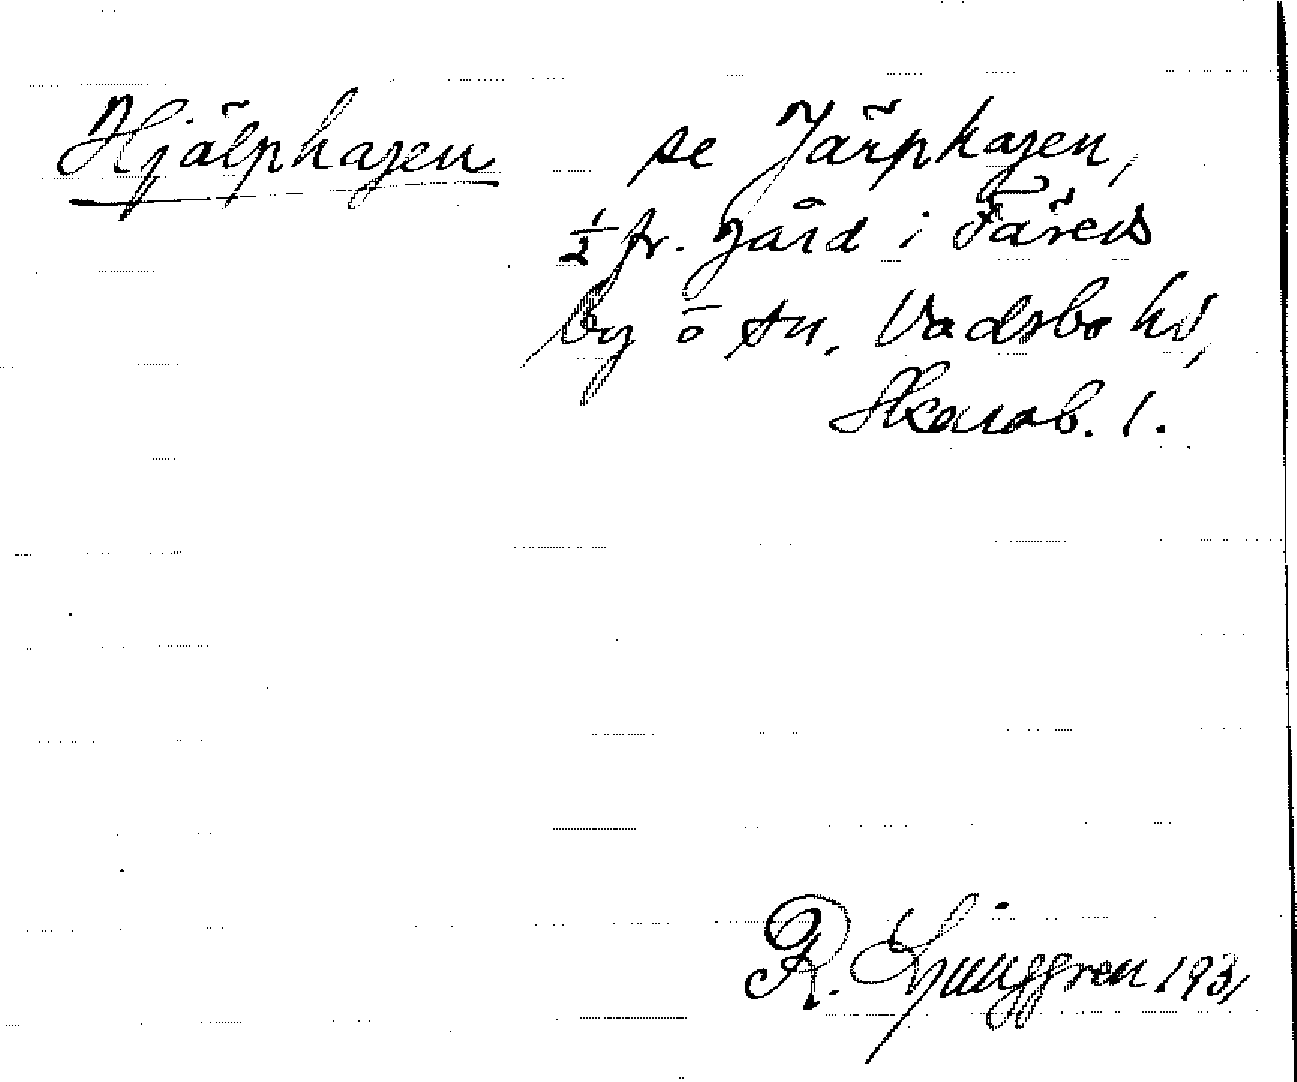 Hjälphagen se Järphagen,
1/2 fr. gård i Färeds
by ö sn. Vadsbo hd,
Skarab. l.
R. Ljunggren 1931